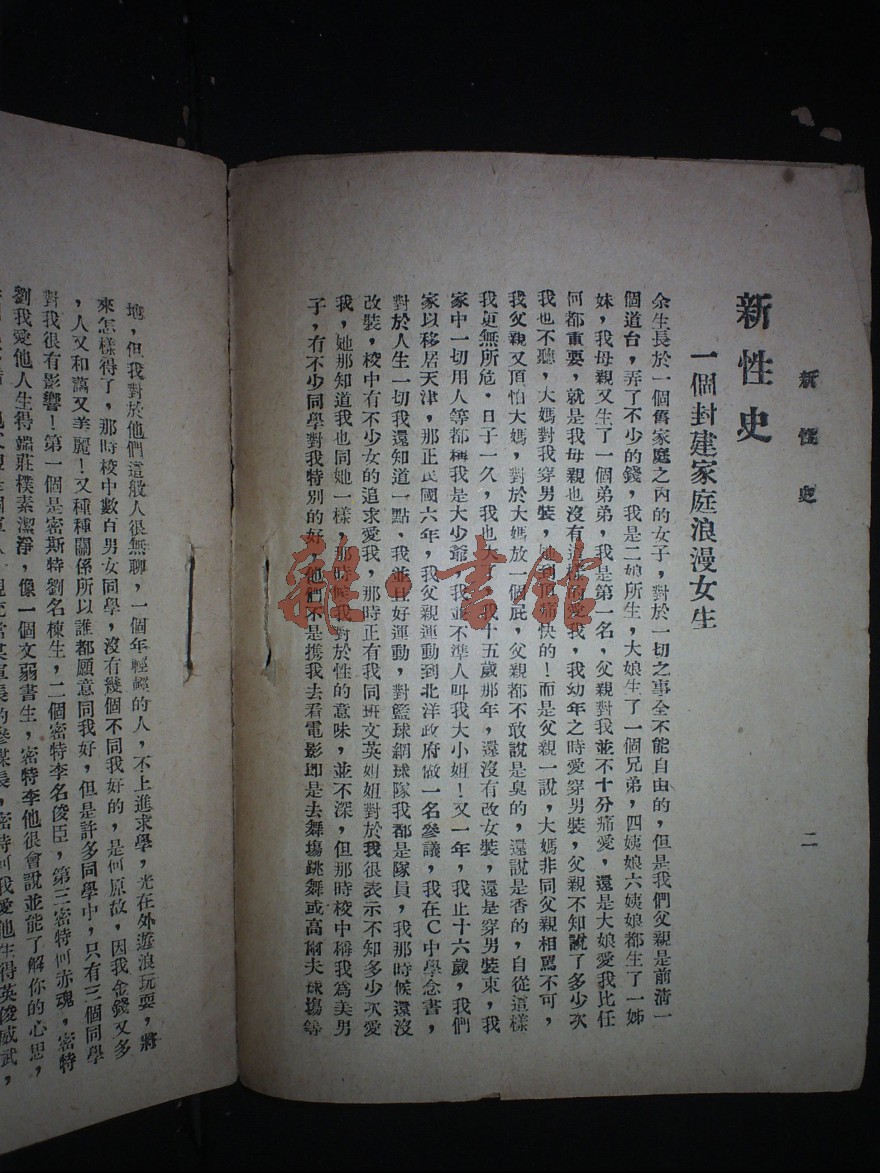 新性史
二
新性史
一個封建家庭浪漫女生
余生長於一個舊家庭之內的女子，對於一切之事全不能自由的，但是我們父親是前清一
個道台，弄了不少的錢，我是二娘所生，大娘生了一個兄弟，四姨娘六姨娘都生了一姊
妹，我母親又生了一個弟弟，我是第一名，父親對我並不十分痛愛，還是大娘愛我比任
何都重要，就是我母親也沒有這樣的愛我，我幼年之時愛穿男裝，父親不知說了多少次
我也不聽，大媽對我穿男裝，她到頂痛快的！而是父親一說，大媽非同父親相罵不可，
我父親又頂怕大媽，對於大媽放一個屁，父親都不敢說是臭的，還說是香的，自從這樣
我更無所危．日子一久，我也大了，我十五歲那年，還沒有改女裝，還是穿男裝束，我
家中一切用人等都稱我是大少爺，我並不準人叫我大小姐！又一年，我止十六歲，我們
家以移居天津，那正民國六年，我父親運動到北洋政府做一名參議，我在C中學念書，
對於人生一切我還知道一點、我並且好運動，對籃球網球隊我都是隊員，我那時候還沒
改裝，校中有不少女的追求愛我，那時正有我同班文英姐姐對於我很表示不知多少次愛
我，她那知道我也同她一樣，那時候我對於性的意味，並不深，但那時校中稱我爲美男
子，有不少同學對我特別的好，他們不是携我去看電影即是去舞場跳舞或高爾夫球場等
地，但我對於他們這般人很無聊，一個年輕輕的人，不上進求學，光在外遊浪玩耍，將
來怎樣得了，那時校中數百男女同學，沒有幾個不同我好的，是何原故，因我金錢又多
，人又和藹又美麗！又種種關係所以誰都願意同我好，但是許多同學中，只有三個同學
對我很有影響！第一個是密斯特劉名棟生，二個密特李名俊臣，第三密特何赤魂，密特
劉我愛他人生得端莊樸素潔淨，像一個文弱書生，密特李他很會說並能了解你的心思，
參謀長，密特何我愛他生得英俊威武，
雜·書館